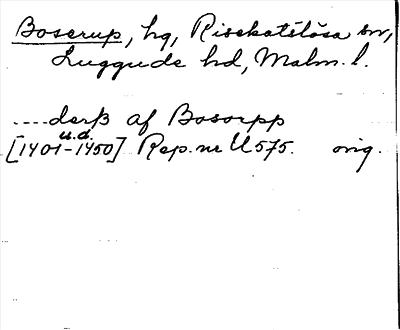 Boserup, hg, Risekatslösa sn,
Luggude hd, Malm. l.
....derß af Bosorpp
u.d.
[1401-1450] Rep. nr U 575. orig.